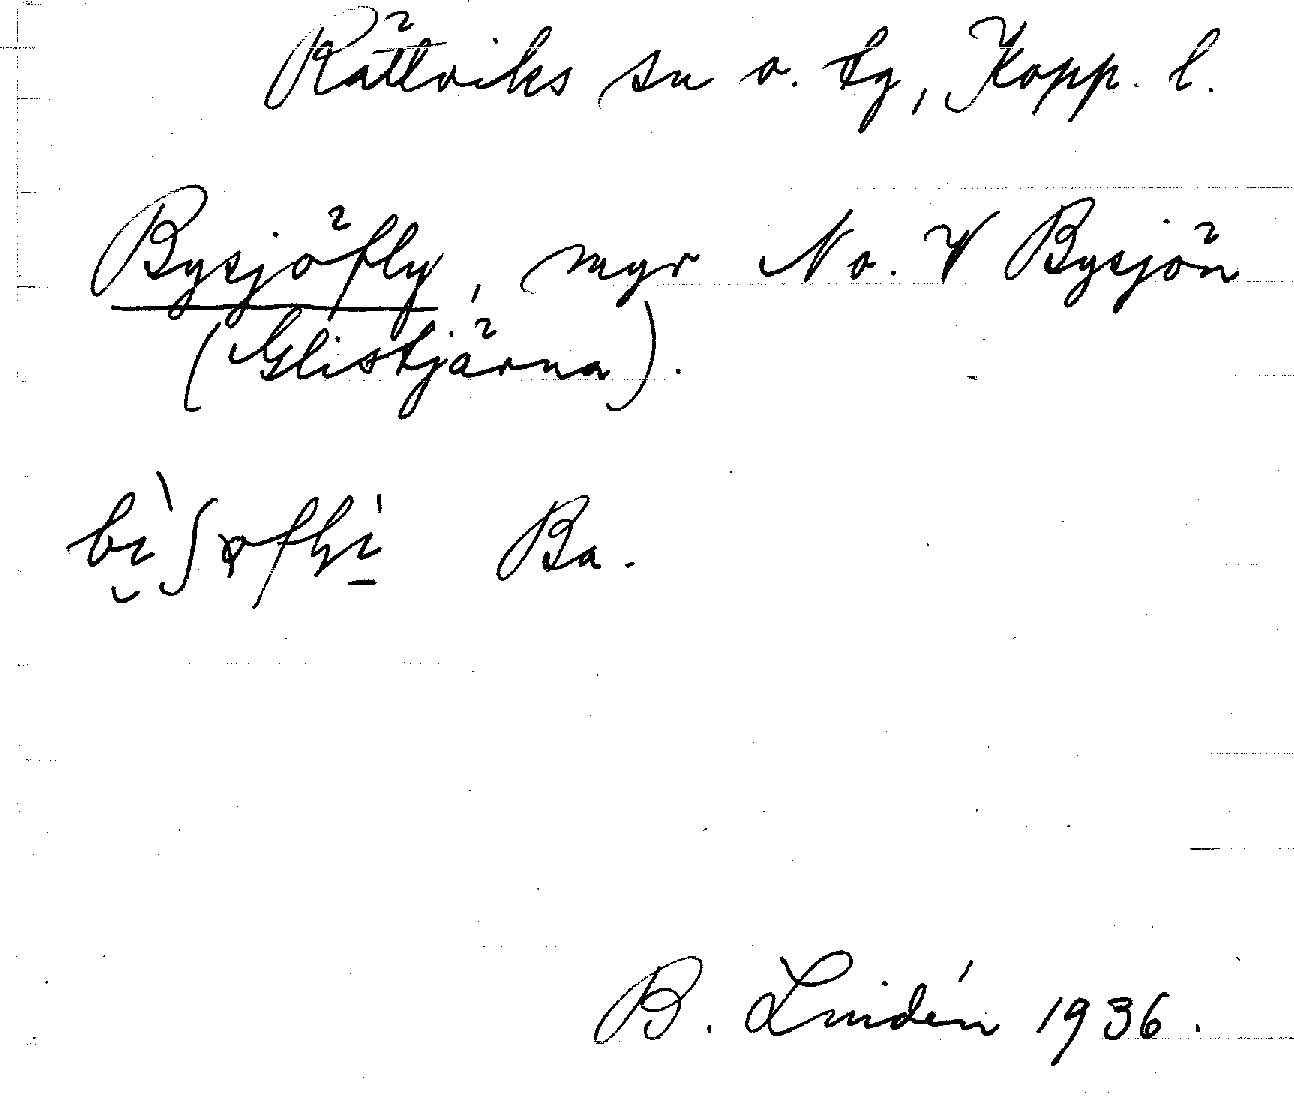 Rättviks sn o. tg, Kopp. l.
Bysjöfly, myr N o. V Bysjön
(Glistjärna).
Ba.
B. Lindén 1936.